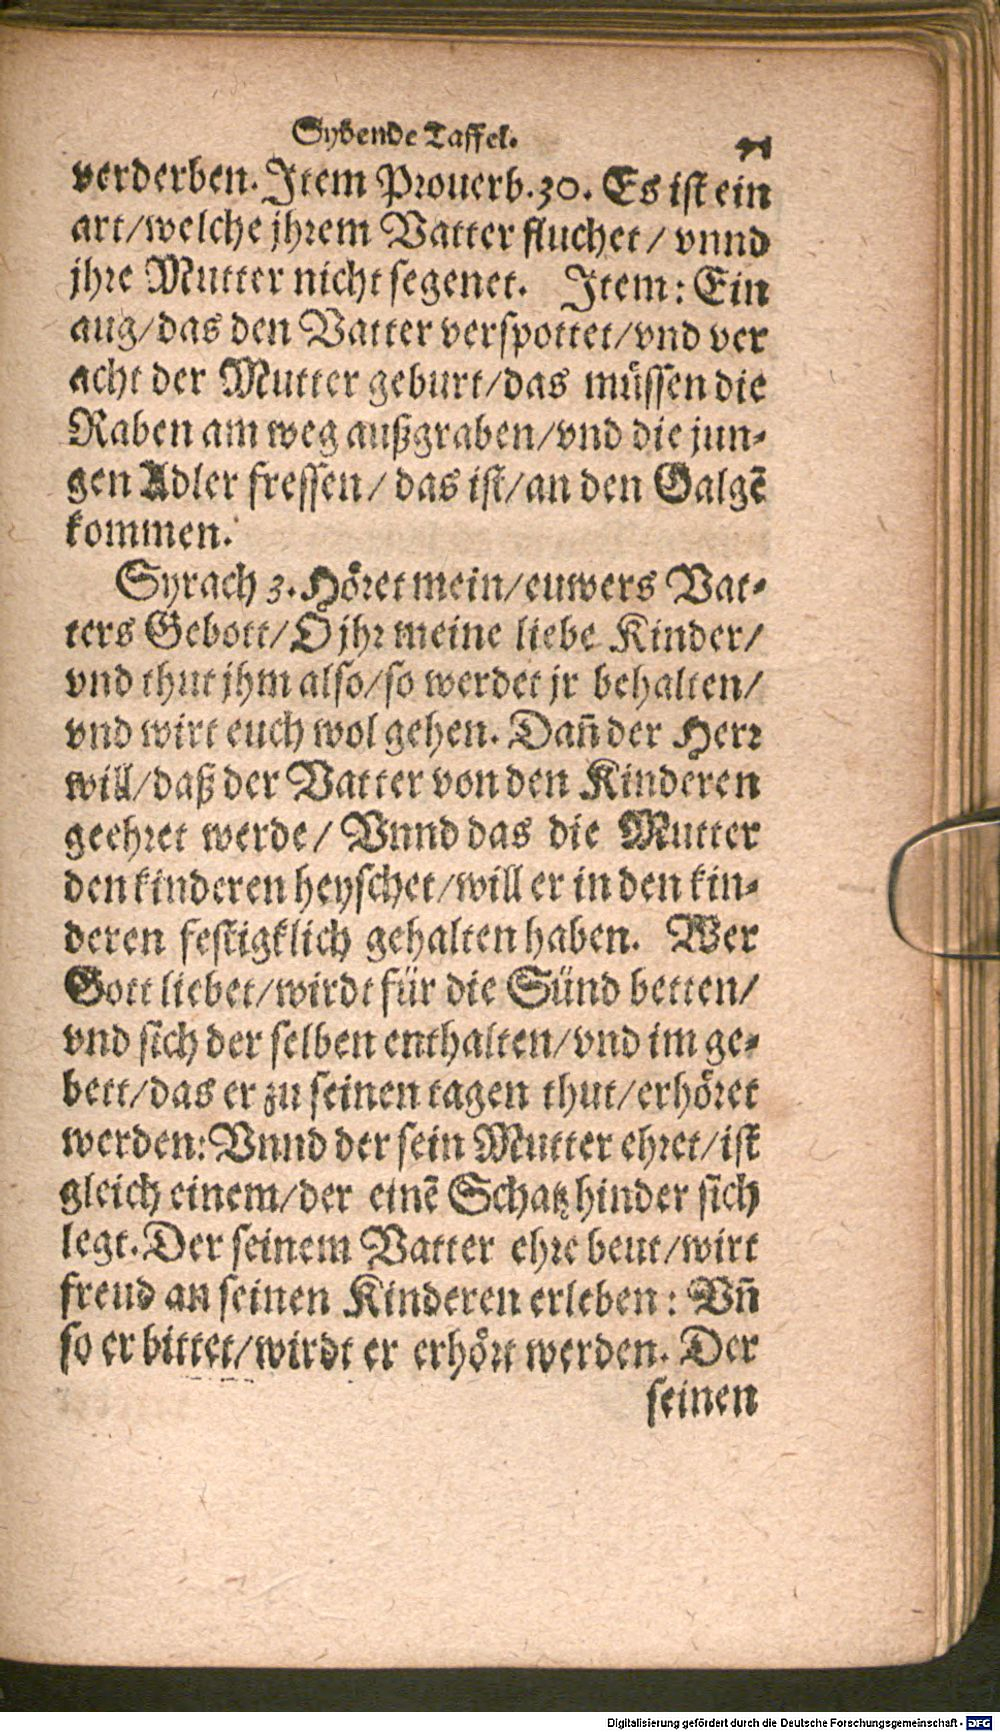 Sybende Taffel. 71
verderben. Item Prouerb. 30. Es ist ein
art/welche jhrem Vatter fluchet/ vnnd
jhre Mutter nicht segenet. Item: Ein
aug/das den Vatter verspottet/vnd ver
acht der Mutter geburt/das müssen die
Raben am weg außgraben/vnd die jun-
gen Adler fressen/ das ist/an den Galgẽ
kommen.
Syrach 3. Höret mein/euwers Vat-
ters Gebott/O jhr meine liebe Kinder/
vnd thut jhm also/so werdet jr behalten/
vnd wirt euch wol gehen. Dañ der Herr
will/daß der Vatter von den Kinderen
geehret werde/ Vnnd das die Mutter
den kinderen heyschet/will er in den kin-
deren festigklich gehalten haben. Wer
Gott liebet/wirdt für die Sünd betten/
vnd sich der selben enthalten/vnd im ge-
bett/das er zu seinen tagen thut/erhöret
werden: Vnnd der sein Mutter ehret/ist
gleich einem/der einẽ Schatz hinder sich
legt. Der seinem Vatter ehre beut/wirt
freud an seinen Kinderen erleben: Vñ
so er bittet/wirdt er erhört werden. Der
seinen
Digitalisierung gefördert durch die Deutsche Forschungsgemeinschaft - DFG